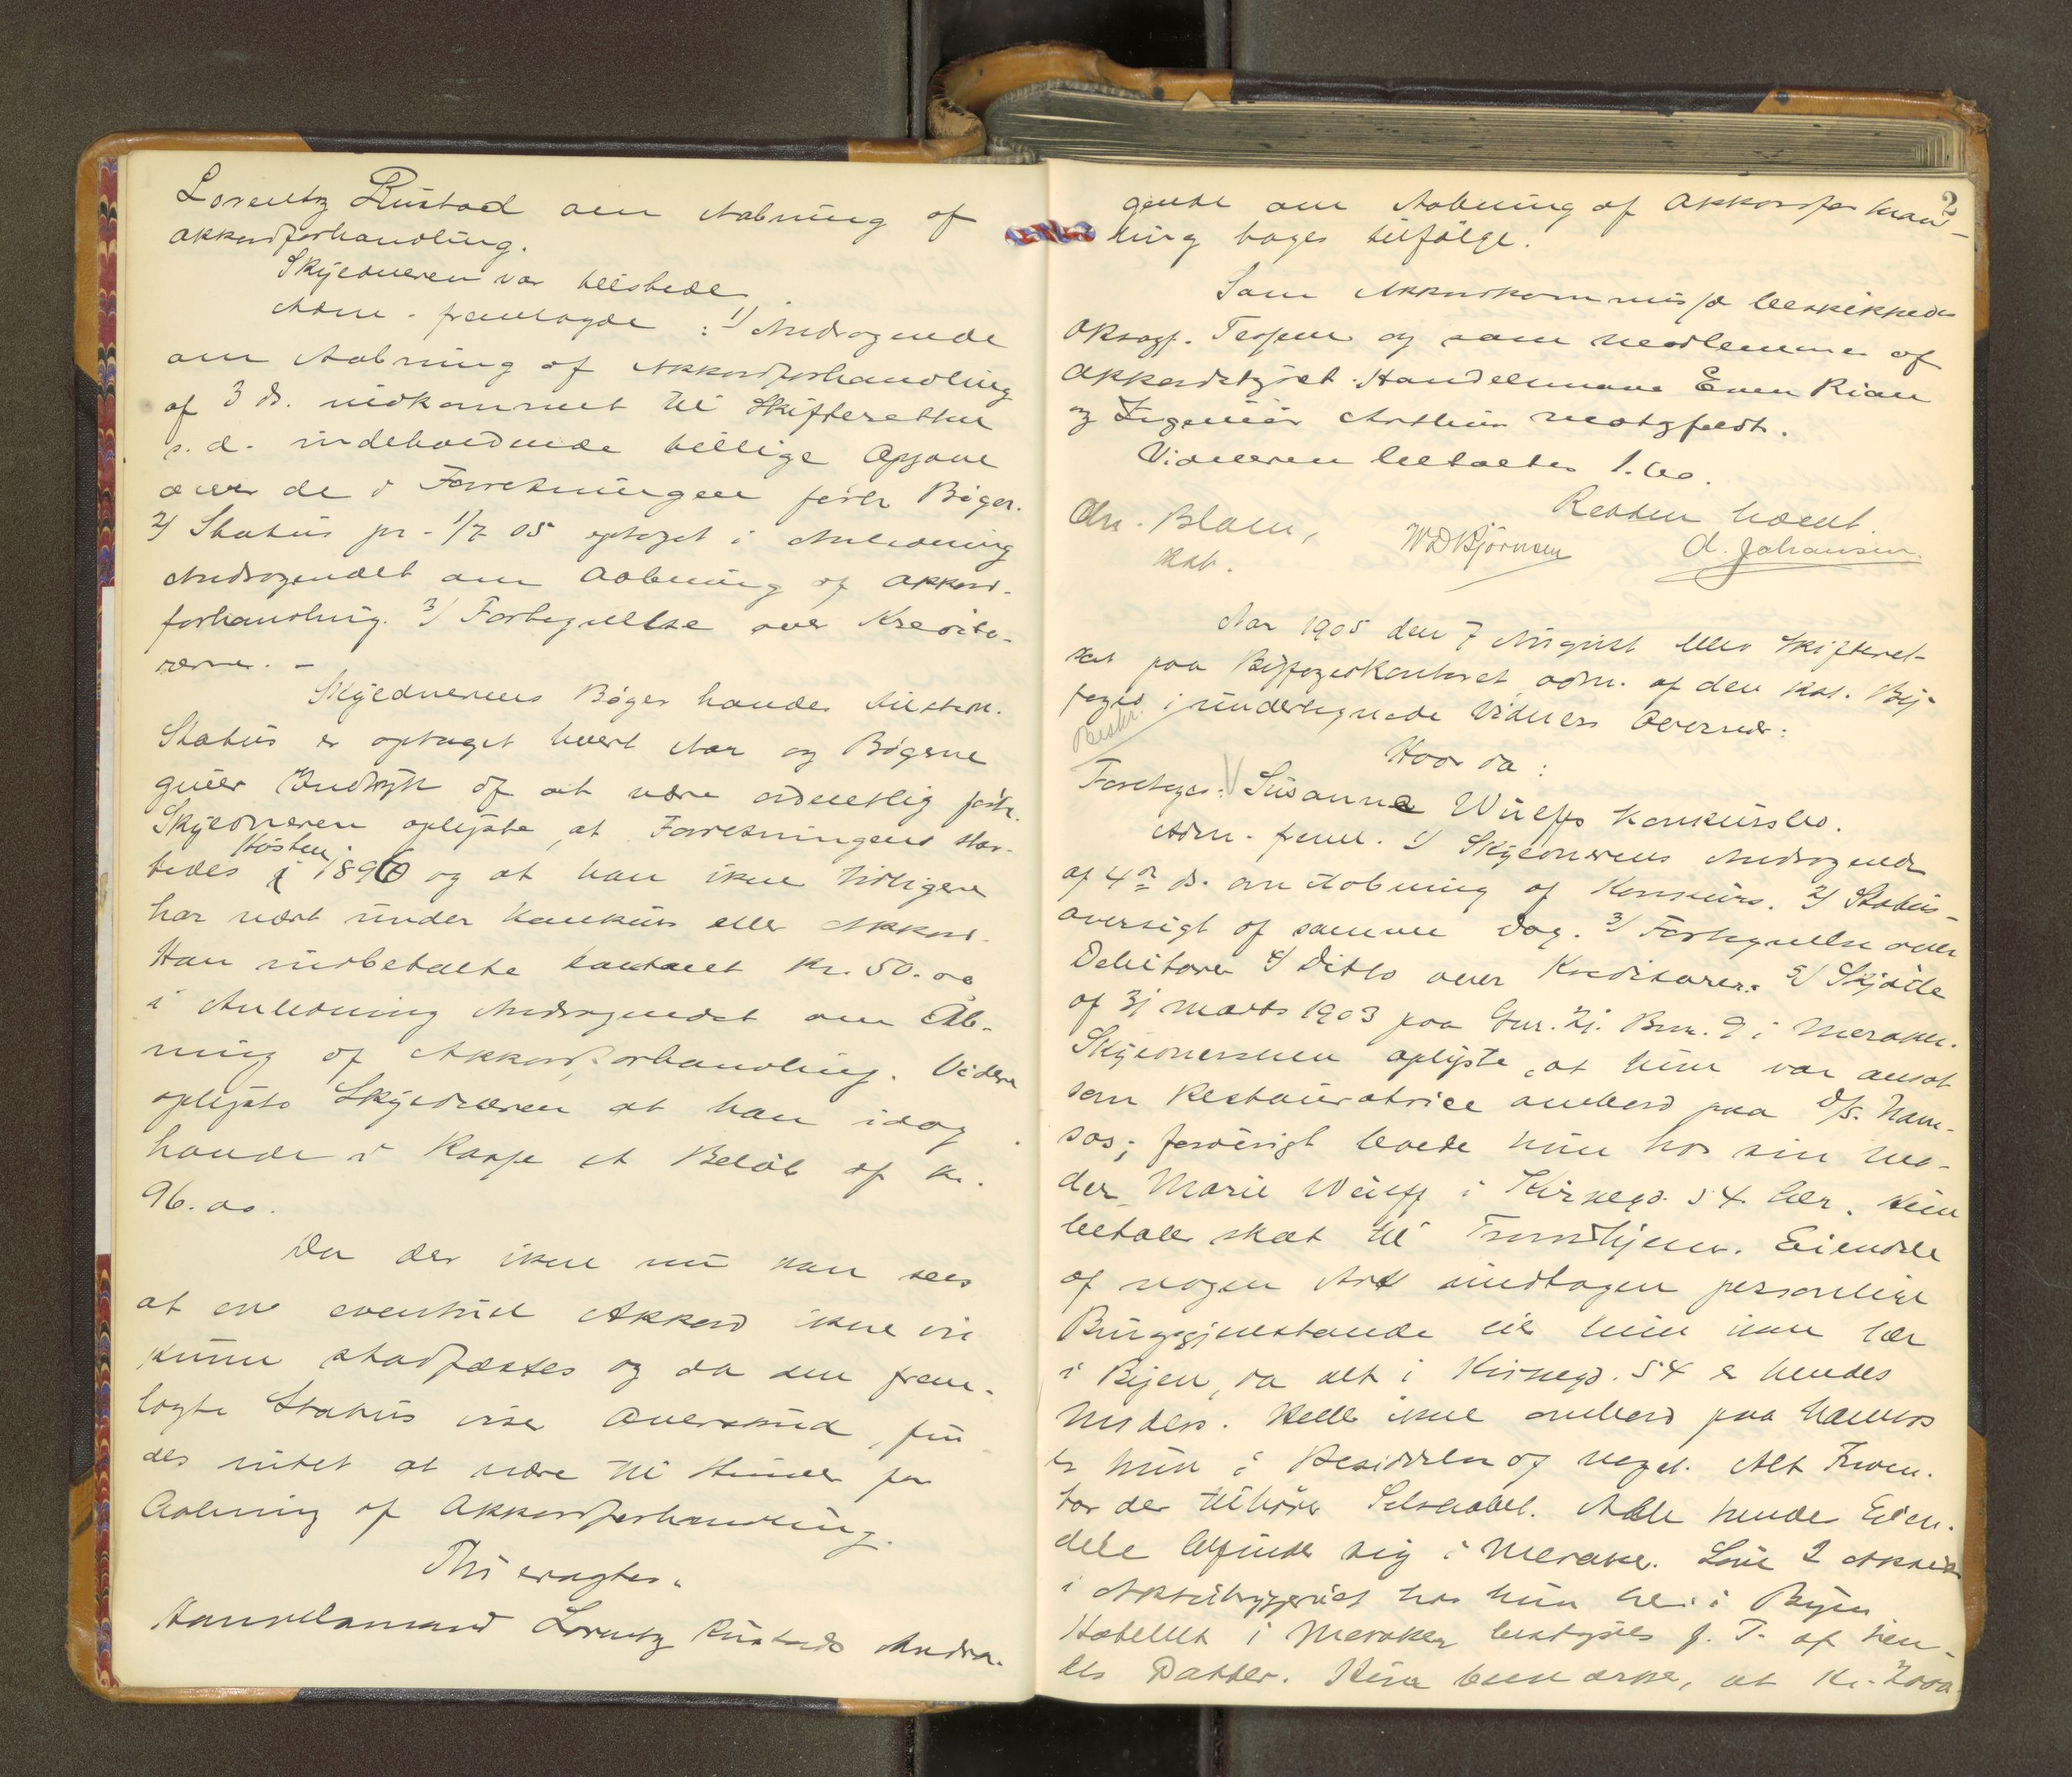 Lorentz Rustad om Aabning af
Akkordforhandling.
Skyldneren var tilstede.
Adm. fremlagde: 1) Andragende
om Aabning af Akkordforhandling
af 3 ds. indkommet til Skifteretten
s.d. indeholdende tillige Opgave
over de i Forretningen førte Bøger.
2) Status pr. 1/7 05 optaget i Anledning
Andragendet om Aabning af Akkord-
forhandling. 3) Fortegnelse over Kredito-
rerne. -
Skyldnerens Bøger havdes tilstede.
Status er optaget hvert Aar og Bøgerne
giver Indtryk af at være ordentlig ført.
Skyldneren oplyste, at Forretningens star-
tedes Høsten 1896 og at han ikke tidligere
har vært under Konkurs eller Akkord.
Han indbetalte kontant Kr. 50.00
i Anledning Andragendet om Åb-
ning af Akkordforhandling. Videre
oplyste Skyldneren at han idag
havde i Kasse et Beløb af Kr.
96.00.
Da der ikke nu kan sees
at en eventuel Akkord ikke vil
kunne stadfæstes og da den frem-
lagte Status viser Overskud, fin-
des intet at være til Hinder for
Aabning af Akkordforhandling.
Thi eragtes:
Handelsmand Lorentz Rustads Andra-
2
gende om Aabning af Akkordforhand-
ling tages tilfølge.
Som Akkordkommissær beskikkedes
Oksagf. Tessem og som Medlemmer af
Akkordstyret Handelsmand Even Rian
og Ingeniør Arthur Motzfeldt.
Vidnerne betaltes 1.60.
Retten hævet.
Chr. Blom,
kst.
W D Bjørnsen
A. Johansen.
Aar 1905 den 7 August blev Skifteret
sat paa Byfogedkontoret adm. af den kst. By-
foged i undertegnede Vidners Overvær:
Beskr.
Hvor da:
Foretoges: Susanna Wulffs Konkursbo.
Adm. freml. 1) Skyldnerens Andragende
af 4de ds. om Aabning af Konkurs. 2) Status-
oversigt af samme Dag. 3) Fortegnelse over
Debitorer 4) Ditto over Kreditorer. 5) Skjøde
af 31 Marts 1903 paa Gnr. 21. Bnr. 9 i Meraker.
Skyldnersken oplyste, at hun var ansat
som Restauratrice ombord paa D/S. Nam-
sos; forøvrigt boede hun hos sin Mo-
der Marie Wulff i Kirkegd. 54 her. Hun
betaler skat til Trondhjem. Eiendele
af nogen Art undtagen personlige
Brugsgjenstande eier hun ikke her
i Byen, da alt i Kirkegd. 54 er hendes
Moders. Heller ikke ombord paa Namsos
er hun i Besiddelse af noget. Alt Inven-
tar der tilhører Selskabet. Alle hendes Eien-
dele befinder sig i Meraker. Kun 2 Aktier
i Aktiebryggeriet har hun her i Byen
Hotellet i Meraker bestyres f. T. af hen-
des Datter. Hun bemærker, at Kr. 2000